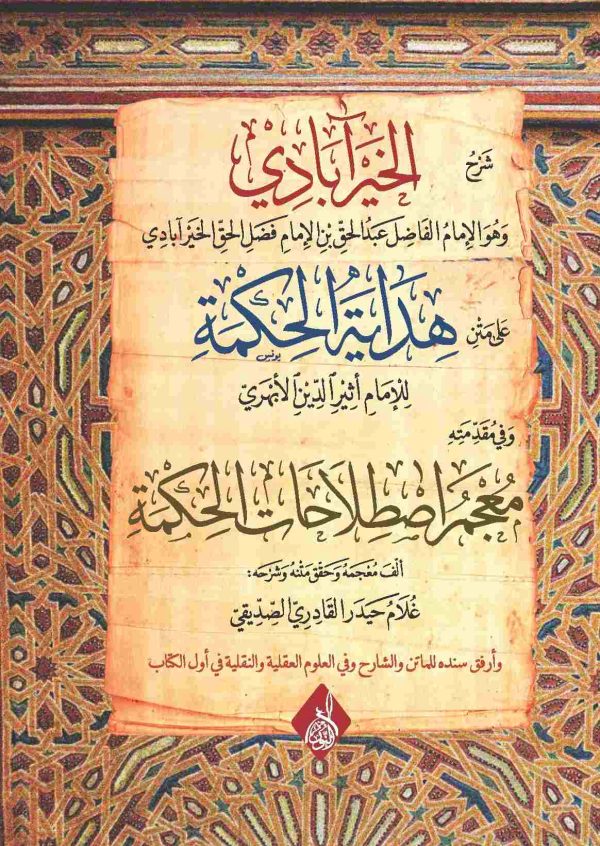 شَرْحُ الخَيْرآبَادِي
وَهُوَ الإِمَامُ الفَاضِل عَبْدُ الحَقِّ بْنِ الإِمَامِ فَضْلِ الحَقِّ الخَيْرآبَادِي
عَلى مَتْنِ هِدَايَةُ الحِكْمَةِ
يونس
لِلإِمَامِ أَثِيْرِ الدِّيْنِ الأَبْهَرِيّ
وَفِي مُقَدِّمَتِهِ
مُعْجَمُ اصْطِلَاحَاتِ الحِكْمَةِ
ألّفَ مُعْجَمَهُ وَحَقّقَ مَتْنَهُ وَشَرْحَه:
غُلَامُ حَيْدَر القَادِرِيّ الصِّدِّيقِيّ
وأرفق سنده للماتن والشارح وفي العلوم العقلية والنقلية في أول الكتاب